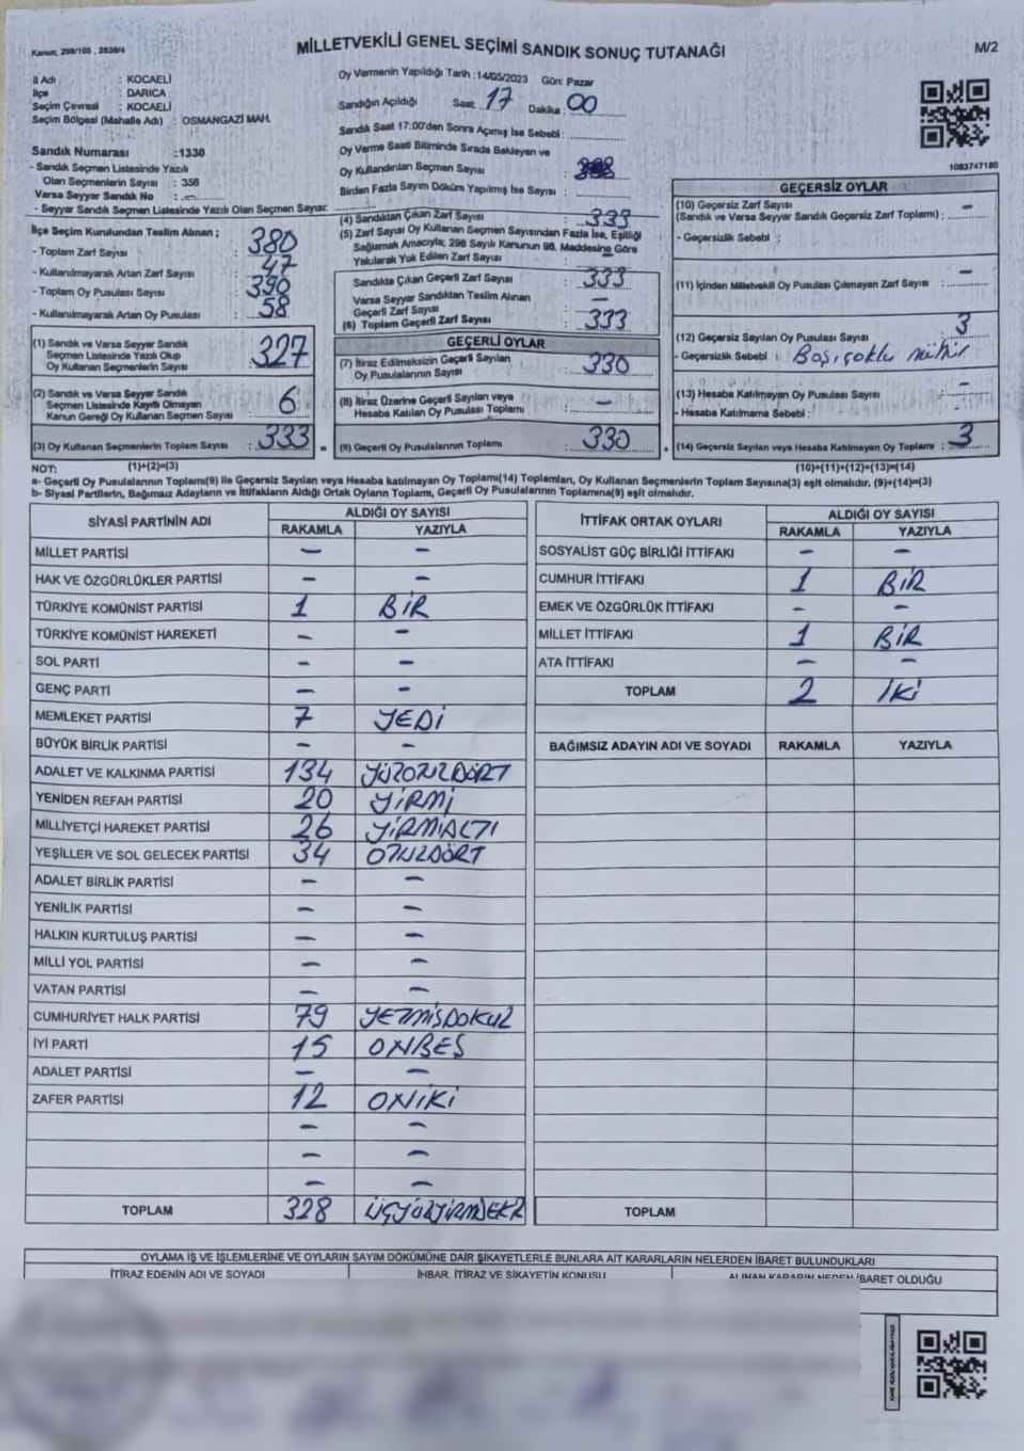 Kanun: 298/105 , 2839/4
MİLLETVEKİLİ GENEL SEÇİMİ SANDIK SONUÇ TUTANAĞI
M/2
İl Adı : KOCAELİ
İlçe : DARICA
Seçim Çevresi : KOCAELİ
Seçim Bölgesi (Mahalle Adı) : OSMANGAZİ MAH.
Sandık Numarası :1330
- Sandık Seçmen Listesinde Yazılı
Olan Seçmenlerin Sayısı : 356
Varsa Seyyar Sandık No :
- Seyyar Sandık Seçmen Listesinde Yazılı Olan Seçmen Sayısı:
İlçe Seçim Kurulundan Teslim Alınan ;
- Toplam Zarf Sayısı : 380
- Kullanılmayarak Artan Zarf Sayısı : 47
- Toplam Oy Pusulası Sayısı : 390
- Kullanılmayarak Artan Oy Pusulası : 58
(1) Sandık ve Varsa Seyyar Sandık
Seçmen Listesinde Yazılı Olup
Oy Kullanan Seçmenlerin Sayısı : 327
(2) Sandık ve Varsa Seyyar Sandık
Seçmen Listesinde Kayıtlı Olmayan
Kanun Gereği Oy Kullanan Seçmen Sayısı : 6
(3) Oy Kullanan Seçmenlerin Toplam Sayısı : 333
Oy Vermenin Yapıldığı Tarih :14/05/2023 Gün: Pazar
Sandığın Açıldığı Saat: 17 Dakika : 00
Sandık Saat 17:00'den Sonra Açılmış İse Sebebi :
Oy Verme Saati Bitiminde Sırada Bekleyen ve
Oy Kullandırılan Seçmen Sayısı :
Birden Fazla Sayım Döküm Yapılmış İse Sayısı :
(4) Sandıktan Çıkan Zarf Sayısı : 333
(5) Zarf Sayısı Oy Kullanan Seçmen Sayısından Fazla İse, Eşitliği
Sağlamak Amacıyla; 298 Sayılı Kanunun 98. Maddesine Göre
Yakılarak Yok Edilen Zarf Sayısı :
Sandıkta Çıkan Geçerli Zarf Sayısı : 333
Varsa Seyyar Sandıktan Teslim Alınan
Geçerli Zarf Sayısı : —
(6) Toplam Geçerli Zarf Sayısı : 333
GEÇERLİ OYLAR
(7) İtiraz Edilmeksizin Geçerli Sayılan
Oy Pusulalarının Sayısı : 330
(8) İtiraz Üzerine Geçerli Sayılan veya
Hesaba Katılan Oy Pusulası Toplamı : —
(9) Geçerli Oy Pusulalarının Toplamı : 330
1083747180
GEÇERSİZ OYLAR
(10) Geçersiz Zarf Sayısı
(Sandık ve Varsa Seyyar Sandık Geçersiz Zarf Toplamı) : —
- Geçersizlik Sebebi :
(11) İçinden Milletvekili Oy Pusulası Çıkmayan Zarf Sayısı : —
(12) Geçersiz Sayılan Oy Pusulası Sayısı : 3
- Geçersizlik Sebebi : Boş, çoklu mühür
(13) Hesaba Katılmayan Oy Pusulası Sayısı : —
- Hesaba Katılmama Sebebi :
(14) Geçersiz Sayılan veya Hesaba Katılmayan Oy Toplamı : 3
NOT: (1)+(2)=(3)
(10)+(11)+(12)+(13)=(14)
a- Geçerli Oy Pusulalarının Toplamı(9) ile Geçersiz Sayılan veya Hesaba katılmayan Oy Toplamı(14) Toplamları, Oy Kullanan Seçmenlerin Toplam Sayısına(3) eşit olmalıdır. (9)+(14)=(3)
b- Siyasi Partilerin, Bağımsız Adayların ve İttifakların Aldığı Ortak Oyların Toplamı, Geçerli Oy Pusulalarının Toplamına(9) eşit olmalıdır.
SİYASİ PARTİNİN ADI
ALDIĞI OY SAYISI
RAKAMLA YAZIYLA
MİLLET PARTİSİ — —
HAK VE ÖZGÜRLÜKLER PARTİSİ — —
TÜRKİYE KOMÜNİST PARTİSİ 1 BİR
TÜRKİYE KOMÜNİST HAREKETİ — —
SOL PARTİ — —
GENÇ PARTİ — —
MEMLEKET PARTİSİ 7 YEDİ
BÜYÜK BİRLİK PARTİSİ — —
ADALET VE KALKINMA PARTİSİ 134 YÜZOTUZDÖRT
YENİDEN REFAH PARTİSİ 20 YİRMİ
MİLLİYETÇİ HAREKET PARTİSİ 26 YİRMİALTI
YEŞİLLER VE SOL GELECEK PARTİSİ 34 OTUZDÖRT
ADALET BİRLİK PARTİSİ — —
YENİLİK PARTİSİ — —
HALKIN KURTULUŞ PARTİSİ — —
MİLLİ YOL PARTİSİ — —
VATAN PARTİSİ — —
CUMHURİYET HALK PARTİSİ 79 YETMİŞDOKUZ
İYİ PARTİ 15 ONBEŞ
ADALET PARTİSİ — —
ZAFER PARTİSİ 12 ONİKİ
— —
— —
— —
TOPLAM 328 ÜÇYÜZYİRMİSEKİZ
İTTİFAK ORTAK OYLARI
ALDIĞI OY SAYISI
RAKAMLA YAZIYLA
SOSYALİST GÜÇ BİRLİĞİ İTTİFAKI — —
CUMHUR İTTİFAKI 1 BİR
EMEK VE ÖZGÜRLÜK İTTİFAKI — —
MİLLET İTTİFAKI 1 BİR
ATA İTTİFAKI — —
TOPLAM 2 İKİ
BAĞIMSIZ ADAYIN ADI VE SOYADI RAKAMLA YAZIYLA
TOPLAM
OYLAMA İŞ VE İŞLEMLERİNE VE OYLARIN SAYIM DÖKÜMÜNE DAİR ŞİKAYETLERLE BUNLARA AİT KARARLARIN NELERDEN İBARET BULUNDUKLARI
İTİRAZ EDENİN ADI VE SOYADI
İHBAR, İTİRAZ VE ŞİKAYETİN KONUSU
ALINAN KARARIN NEDEN İBARET OLDUĞU